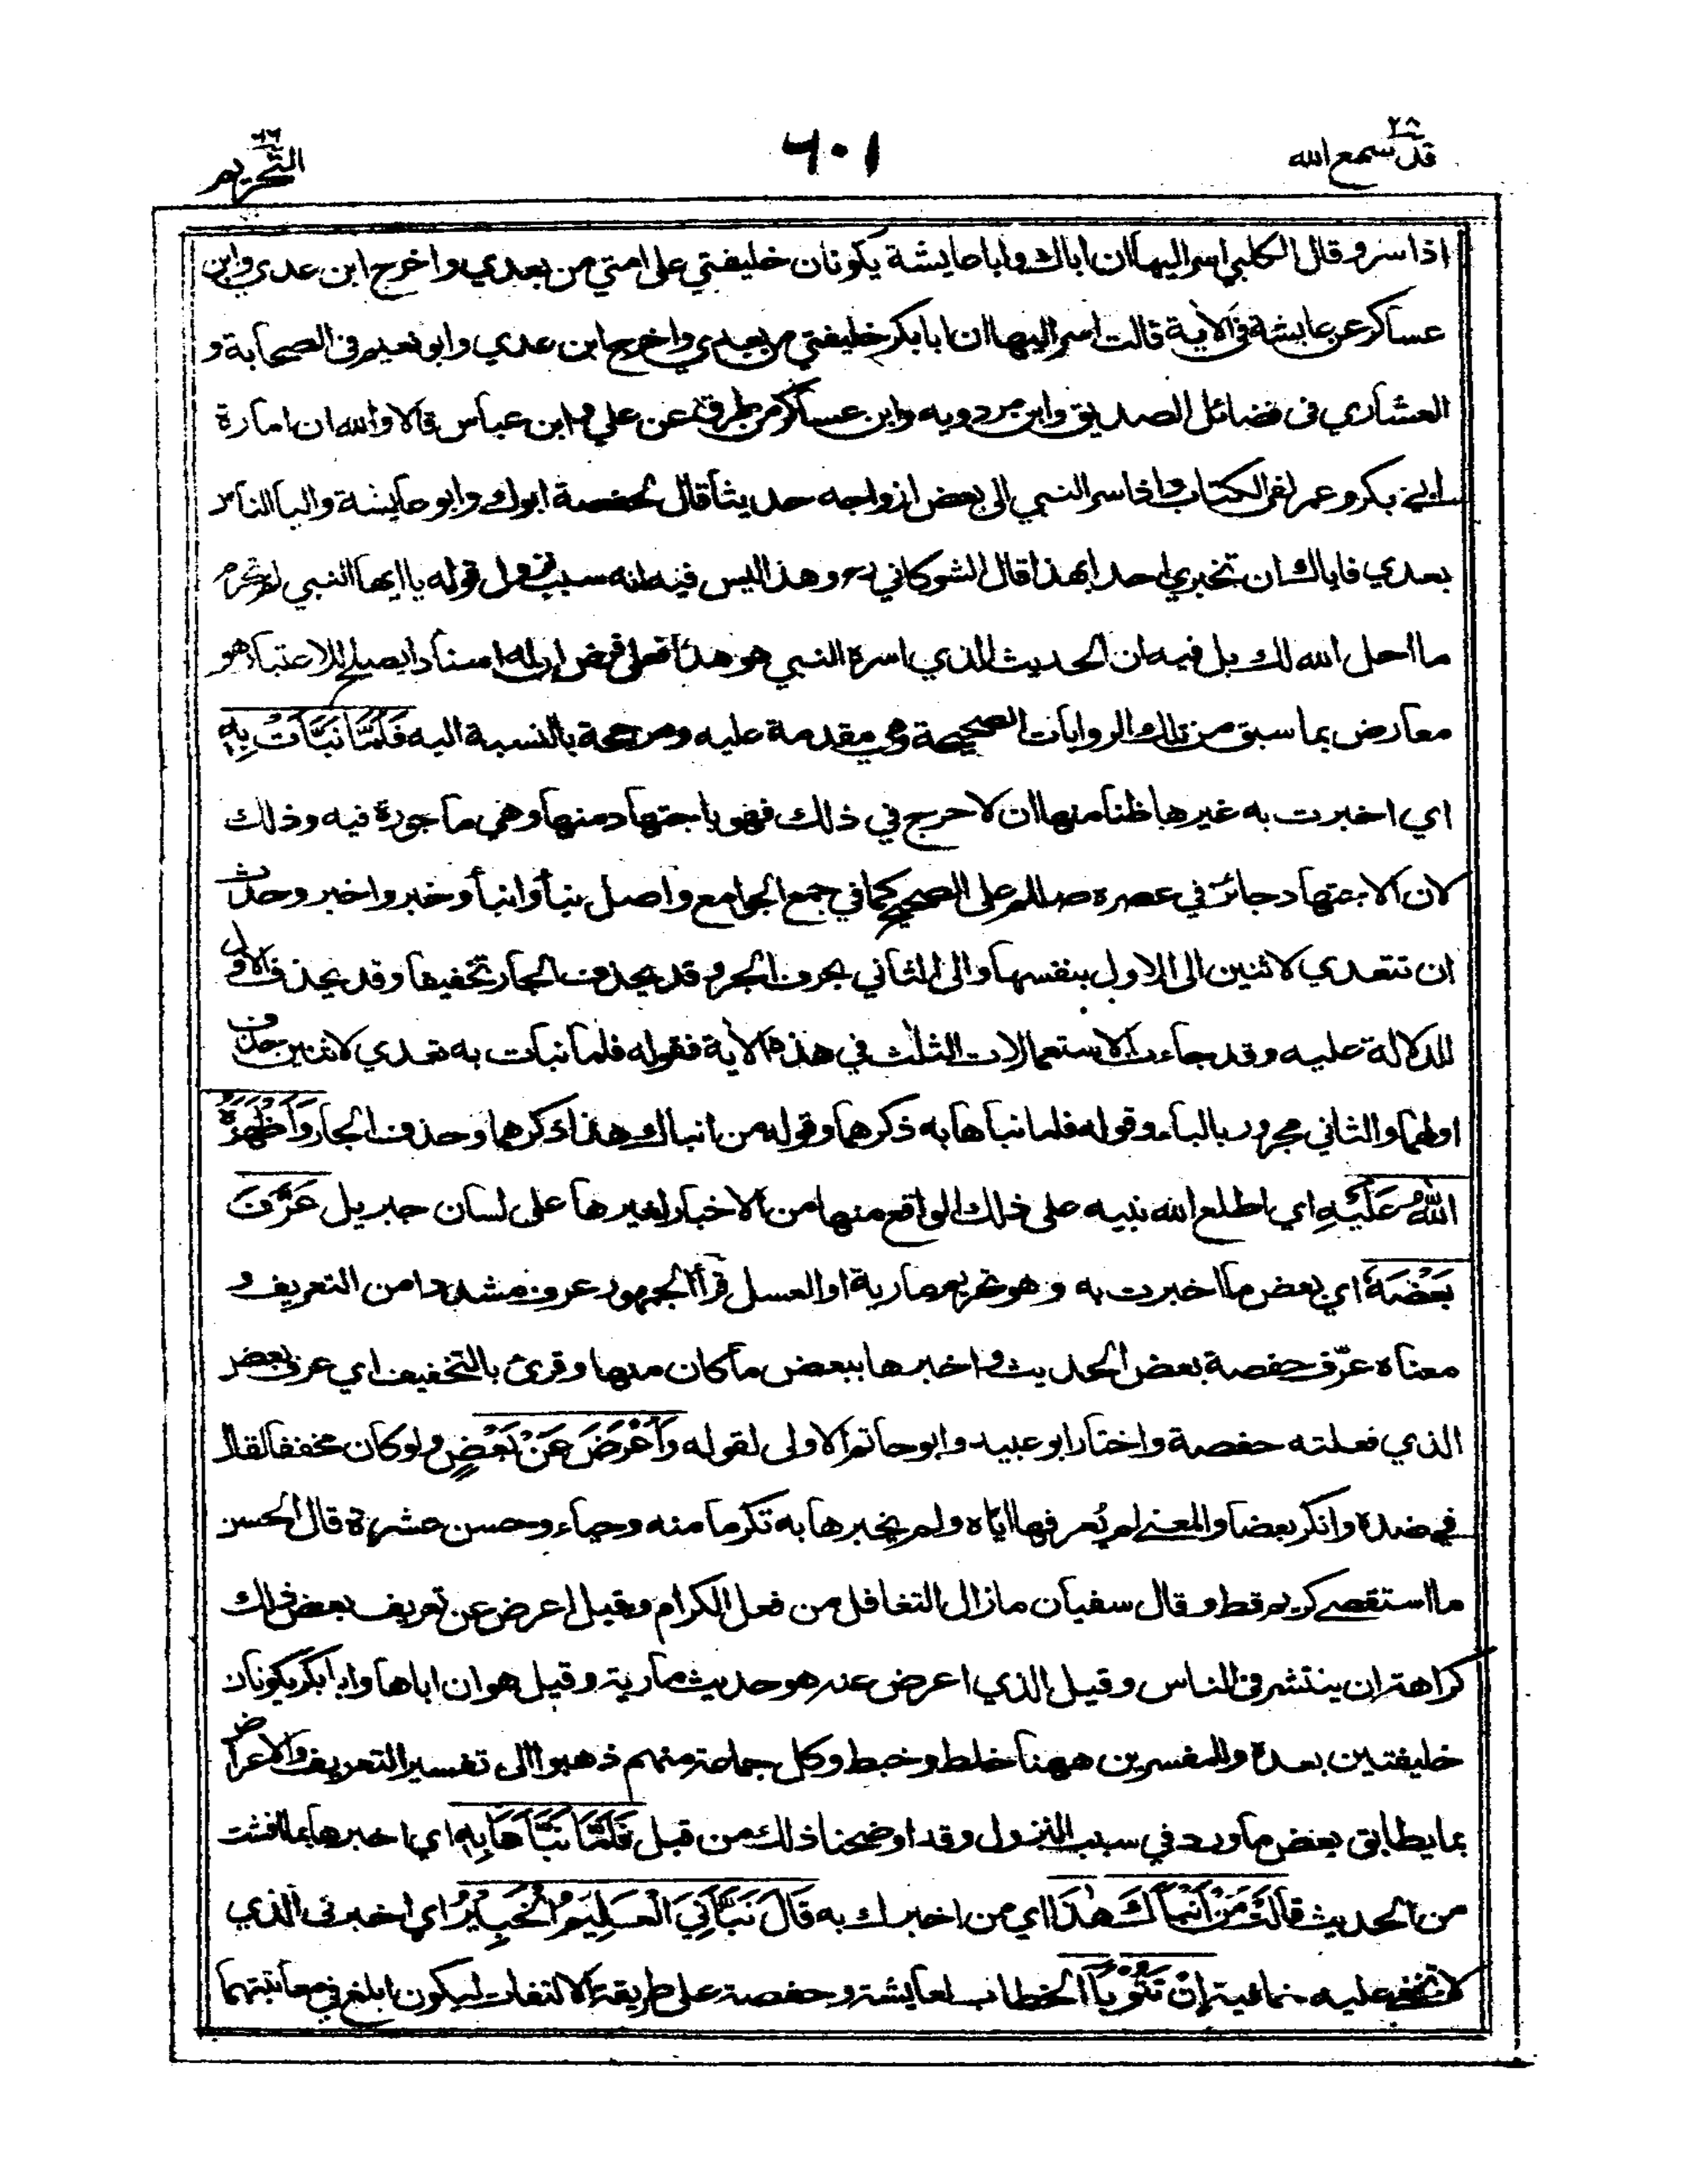 قد سمع الله ٢٨
٦٠١
التحريم ٦٦
اذا سر وقال الكلبي اسر اليها ان اباك وابا عايشة يكونان خليفتي على امتي من بعدي واخرج ابن عدي وابن
عساكر عن عايشة في الآية قالت اسر اليها ان ابا بكر خليفتي من بعدي واخرج ابن عدي وابو نعيم في الصحابة و
العشاري في فضائل الصديق وابن مردويه وابن عساكر من طرق عن علي وابن عباس قالا والله ان امارة
ابي بكر وعمر لفي الكتاب واذا سر النبي الى بعض ازواجه حديثا قال لحفصة ابوك وابو عايشة واليا الناس
بعدي فاياك ان تخبري احدا بهذا قال الشوكاني رح وهذا ليس فيه انه سبب نزول قوله يا ايها النبي لم تحرم
ما احل الله لك بل فيه ان الحديث الذي اسره النبي هو هذا فعلى فرض ان له اسنادا يصلح للاعتبار هو
معارض بما سبق من تلك الروايات الصحيحة وهي مقدمة عليه ومرجحة بالنسبة اليه فَلَمَّا نَبَّأَتْ بِهِ
اي اخبرت به غيرها ظنا منها ان لا حرج في ذلك فهو باجتهاد منها وهي ماجورة فيه وذلك
لان الاجتهاد جائز في عصره صللم على الصحيح كما في جمع الجوامع واصل نبأ وانبأ وخبر واخبر وحدث
ان تتعدي لاثنين الى الاول بنفسها والى الثاني بحرف الجر وقد يحذف الجار تخفيفا وقد يحذف الاول
للدلالة عليه وقد جاءت الاستعمالات الثلث في هذه الآية فقوله فلما نبات به تعدي لاثنين حذف
اولهما والثاني مجرور بالباء وقوله فلما نباها به ذكرهما وقوله من انباك هذا ذكرهما وحذف الجار وَأَظْهَرَهُ
اللهُ عَلَيْهِ اي اطلع الله نبيه على ذلك الواقع منها من الاخبار لغيرها على لسان جبريل عَرَّفَ
بَعْضَهُ اي بعض ما اخبرت به وهو تحريم مارية او العسل قرأ الجمهور عرف مشددا من التعريف و
معناه عرّف حفصة بعض الحديث واخبرها ببعض ما كان منها وقرئ بالتخفيف اي عرف بعض
الذي فعلته حفصة واختار ابو عبيد وابو حاتم الاولى لقوله وَأَعْرَضَ عَنْ بَعْضٍ ولو كان مخففا لقال
في ضده وانكر بعضا والمعنى لم يُعرفها اياه ولم يخبرها به تكرما منه وحياء وحسن عشرة قال الحسن
ما استقصى كريم قط وقال سفيان ما زال التغافل من فعل الكرام وقيل اعرض عن تعريف بعض ذلك
كراهة ان ينتشر في الناس وقيل الذي اعرض عنه هو حديث مارية وقيل هو ان اباها وابا بكر يكونان
خليفتين بعده وللمفسرين ههنا خلط وخبط وكل جماعة منهم ذهبوا الى تفسير التعريف والاعراض
بما يطابق بعض ما ورد في سبب النزول وقد اوضحنا ذلك من قبل فَلَمَّا نَبَّأَهَا بِهِ اي اخبرها بما افشت
من الحديث قَالَتْ مَنْ أَنْبَأَكَ هٰذَا اي من اخبرك به قَالَ نَبَّأَنِيَ الْعَلِيْمُ الْخَبِيْرُ اي اخبرني الذي
لا تخفى عليه خافية إِنْ تَتُوْبَا الخطاب لعايشة وحفصة على طريقة الالتفات ليكون ابلغ في معاتبتهما